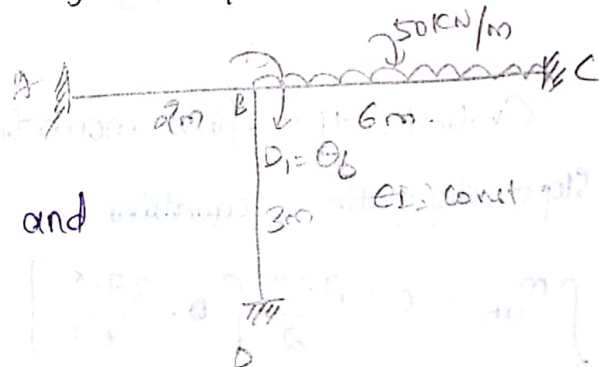 50KN/m
A
B
C
2m
6m.
D₁= θb
EI. Const
and
3m
D